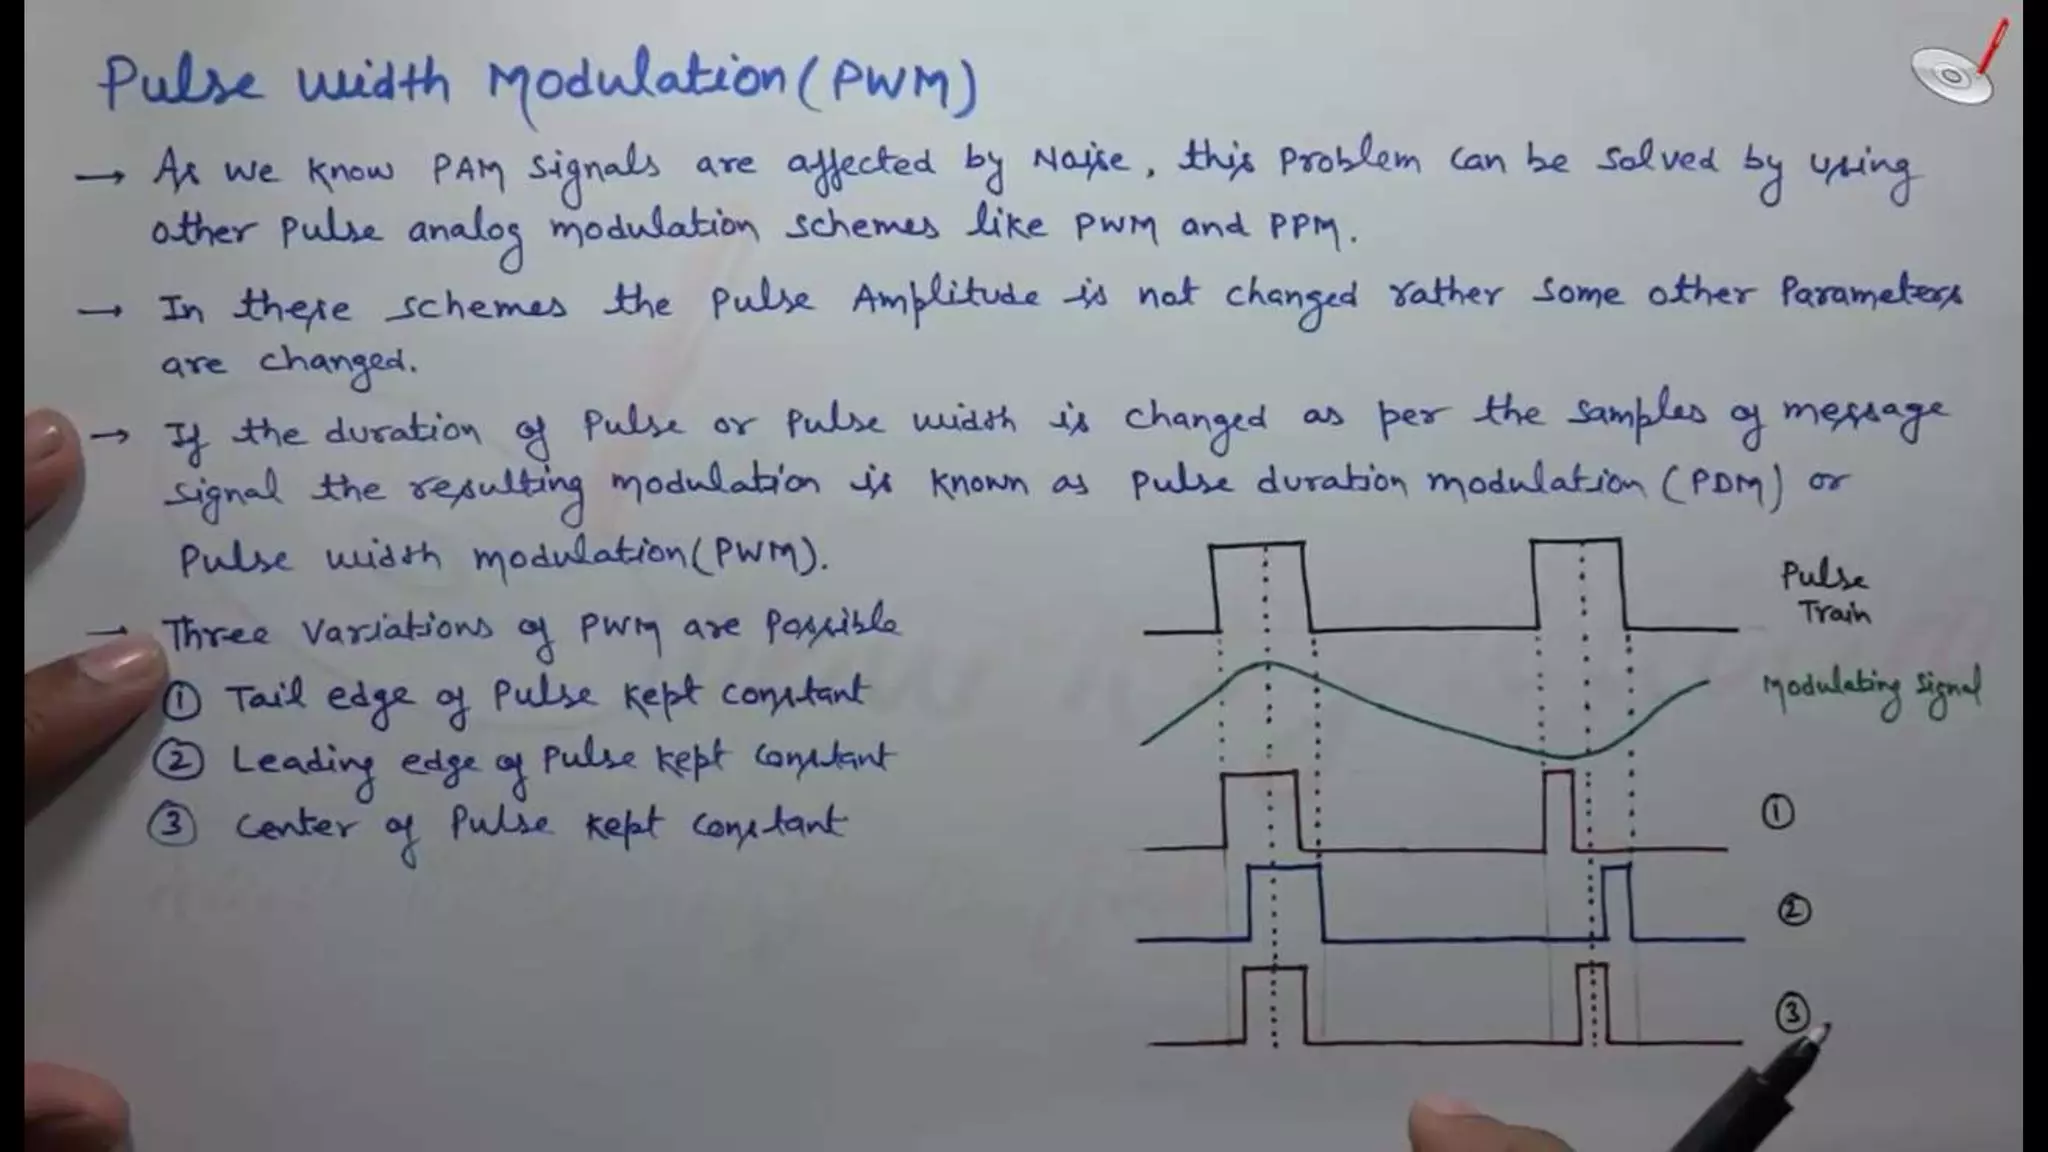 Pulse width Modulation (PWM)
→ As we know PAM signals are affected by Noise, this Problem can be solved by using
other pulse analog modulation schemes like PWM and PPM.
→ In these schemes the pulse Amplitude is not changed rather some other Parameters
are changed.
→ If the duration of pulse or pulse width is changed as per the samples of message
signal the resulting modulation is known as pulse duration modulation (PDM) or
Pulse width modulation (PWM).
→ Three Variations of PWM are Possible
① Tail edge of Pulse kept constant
② Leading edge of Pulse kept constant
③ Center of Pulse kept constant
Pulse
Train
Modulating Signal
①
②
③